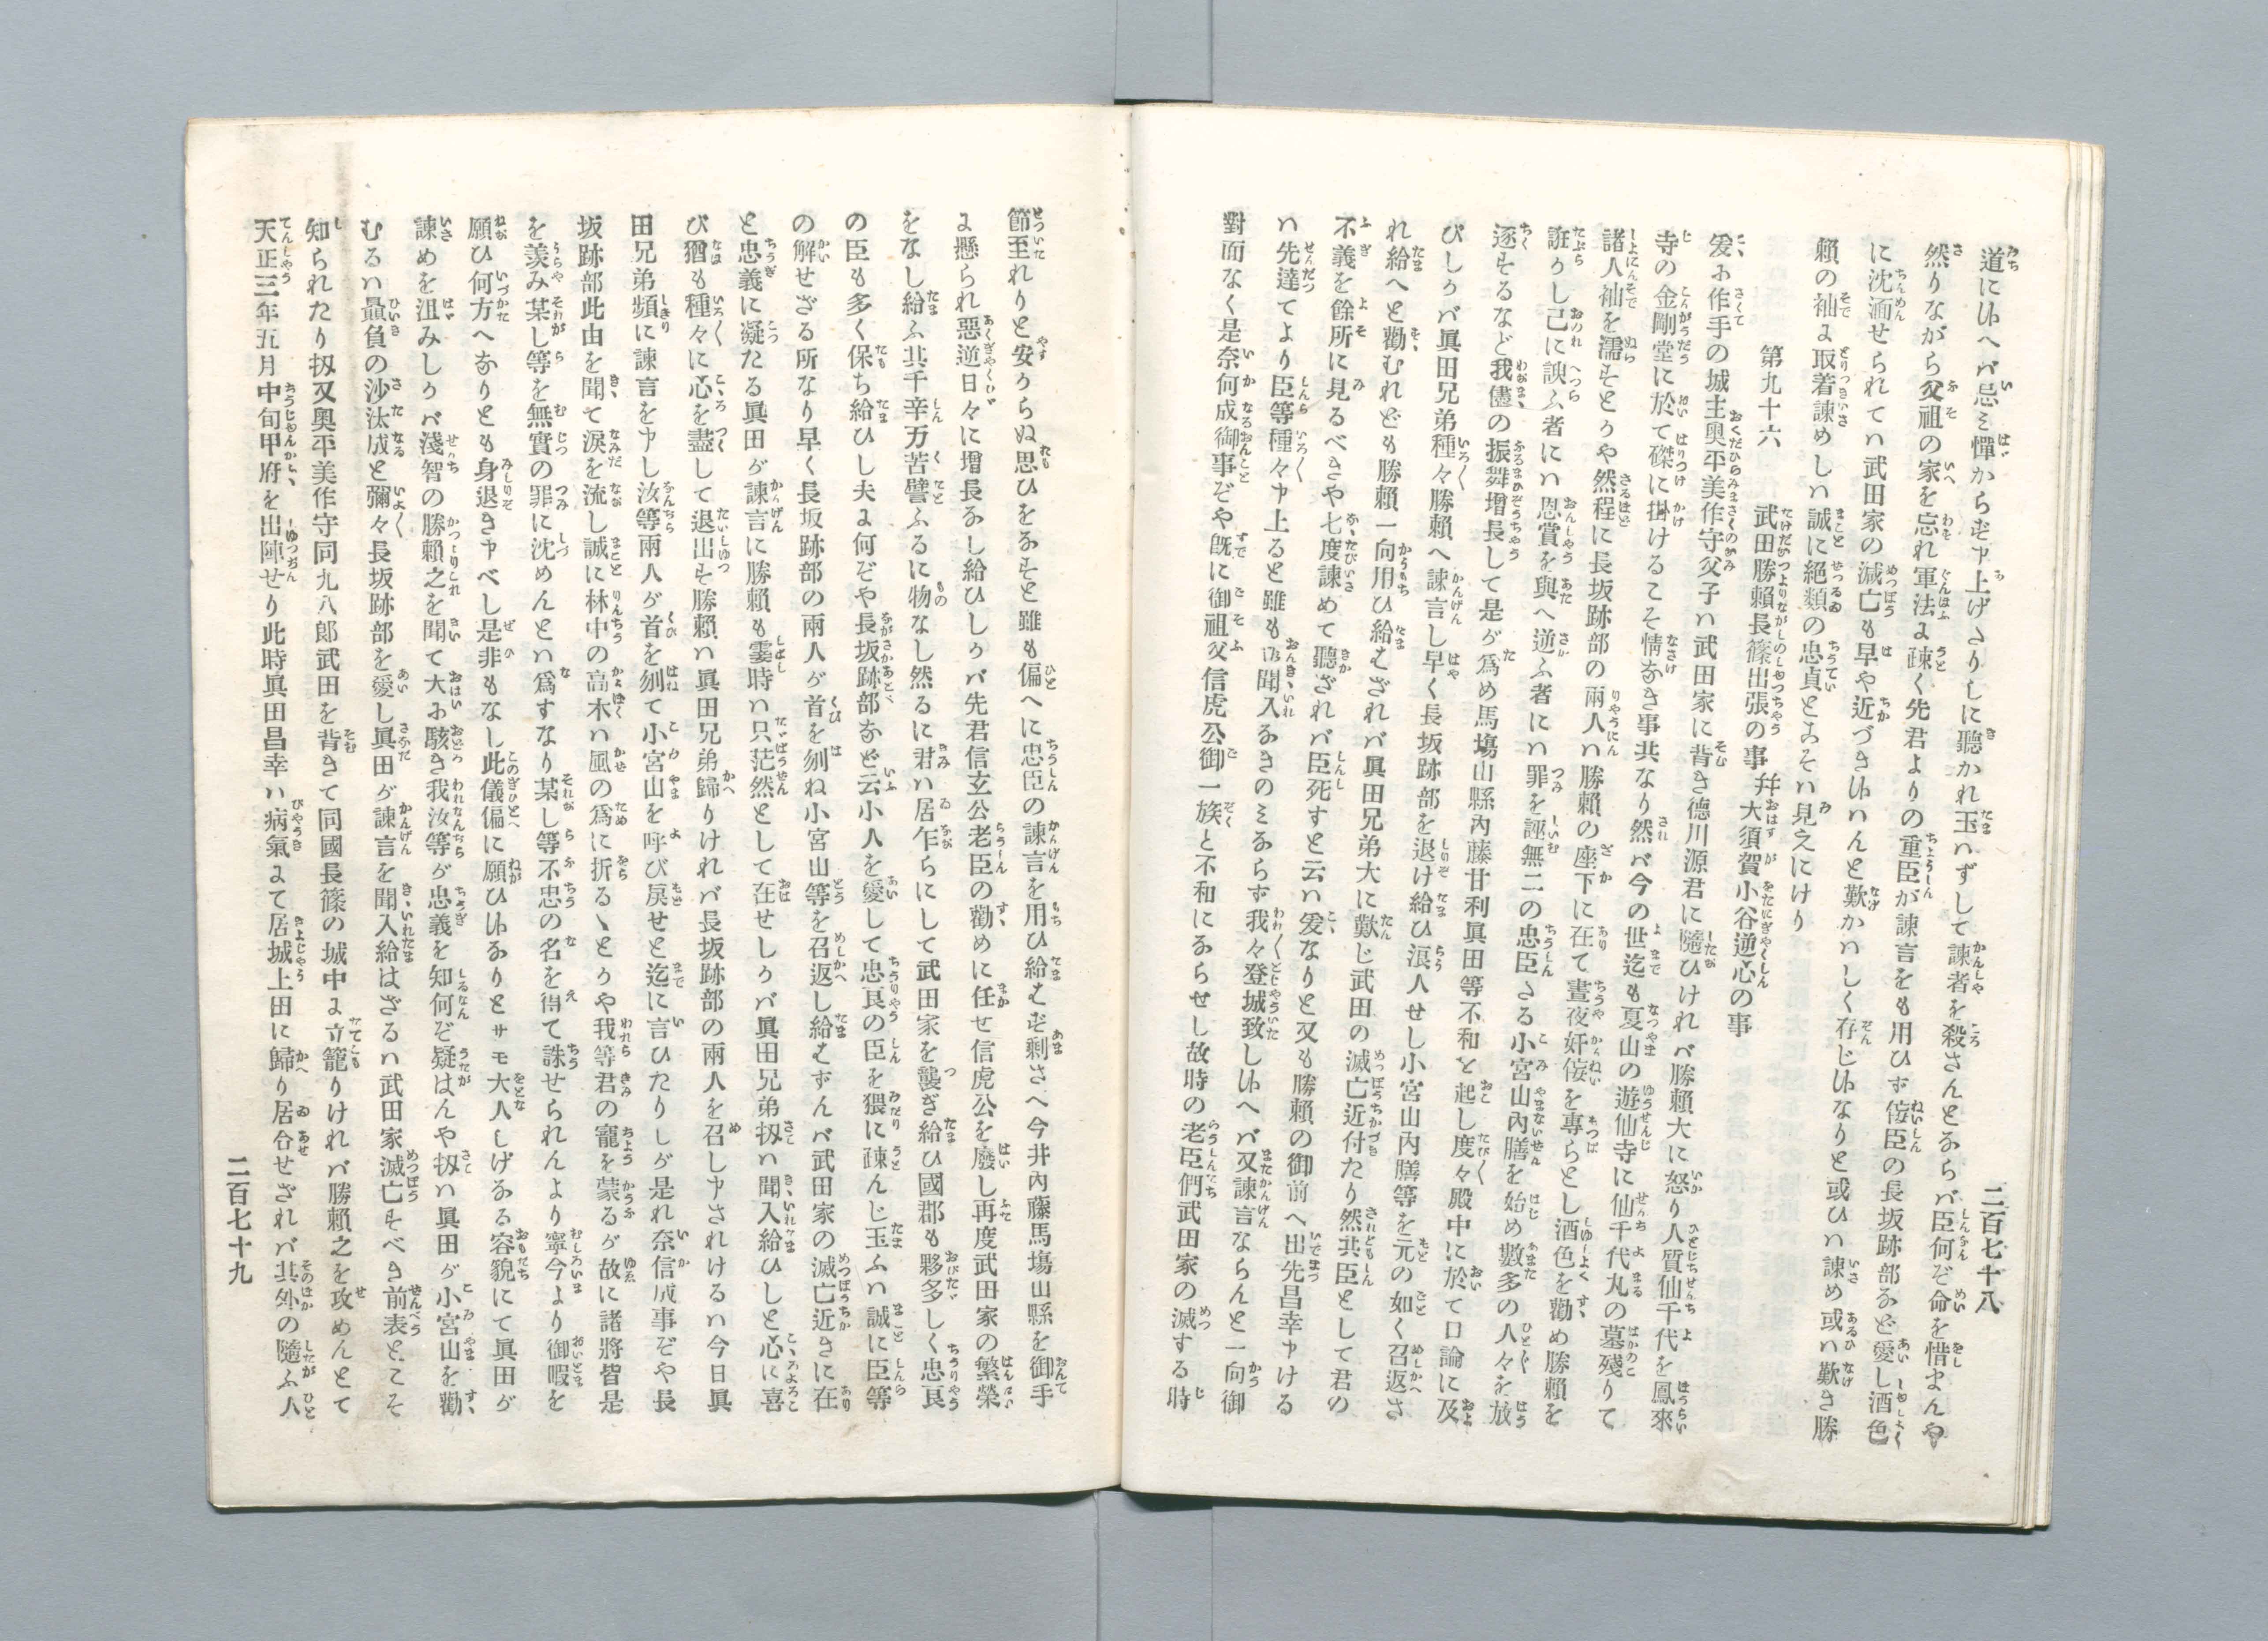 二百七十八
道に候へバ忌ミ憚からず申上げさりしに聽かれ玉ハずして諫者を殺さんとならバ臣何ぞ命を惜まんや
然りながら父祖の家を忘れ軍法よ疎く先君よりの重臣が諫言をも用ひず侫臣の長坂跡部など愛し酒色
に沈湎せられてハ武田家の滅亡も早や近づき候ハんと歎かハしく存じ候なりと或ひハ諫め或ハ歎き勝
賴の袖よ取着諫めしハ誠に絕類の忠貞とこそハ見えにけり
第九十六　武田勝賴長篠出張の事　幷大須賀小谷逆心の事
爰お作手の城主奧平美作守父子ハ武田家に背き德川源君に隨ひけれバ勝賴大に怒り人質仙千代を鳳來
寺の金剛堂に於て磔に掛けるこそ情なき事共なり然バ今の世迄も夏山の遊仙寺に仙千代丸の墓殘りて
諸人袖を濡すとかや然程に長坂跡部の兩人ハ勝賴の座下に在て晝夜奸侫を專らとし酒色を勸め勝賴を
誑かし己に諛ふ者にハ恩賞を與へ逆ふ者にハ罪を誣無二の忠臣さる小宮山內膳を始め數多の人々を放
逐するなど我儘の振舞增長して是が爲め馬塲山縣內藤甘利眞田等不和を起し度々殿中に於て口論に及
びしかバ眞田兄弟種々勝賴へ諫言し早く長坂跡部を退け給ひ浪人せし小宮山內膳等を元の如く召返さ
れ給へと勸むれども勝賴一向用ひ給はざれバ眞田兄弟大に歎じ武田の滅亡近付たり然共臣として君の
不義を餘所に見るべきや七度諫めて聽ざれバ臣死すと云ハ爰なりと又も勝賴の御前へ出先昌幸申ける
ハ先達てより臣等種々申上ると雖も御聞入なきのミならず我々登城致し候へバ又諫言ならんと一向御
對面なく是奈何成御事ぞや旣に御祖父信虎公御一族と不和にならせし故時の老臣們武田家の滅する時
節至れりと安からぬ思ひをなすと雖も偏へに忠臣の諫言を用ひ給はず剩さへ今井內藤馬塲山縣を御手
よ懸られ惡逆日々に增長なし給ひしかバ先君信玄公老臣の勸めに任せ信虎公を廢し再度武田家の繁榮
をなし給ふ其千辛万苦譬ふるに物なし然るに君ハ居乍らにして武田家を襲ぎ給ひ國郡も夥多しく忠良
の臣も多く保ち給ひし夫よ何ぞや長坂跡部など云小人を愛して忠良の臣を猥に疎んじ玉ふハ誠に臣等
の解せざる所なり早く長坂跡部の兩人が首を刎ね小宮山等を召返し給はずんバ武田家の滅亡近きに在
と忠義に凝たる眞田が諫言に勝賴も霎時ハ只茫然として在せしかバ眞田兄弟扨ハ聞入給ひしと心に喜
び猶も種々に心を盡して退出す勝賴ハ眞田兄弟歸りけれバ長坂跡部の兩人を召し申されけるハ今日眞
田兄弟頻に諫言を申し汝等兩人が首を刎て小宮山を呼び戾せと迄に言ひたりしが是れ奈信成事ぞや長
坂跡部此由を聞て淚を流し誠に林中の高木ハ風の爲に折るゝとかや我等君の寵を蒙るが故に諸將皆是
を羨み某し等を無實の罪に沈めんとハ爲すなり某し等不忠の名を得て誅せられんより寧今より御暇を
願ひ何方へなりとも身退き申べし是非もなし此儀偏に願ひ候なりとサモ大人しげなる容貌にて眞田が
諫めを沮みしかバ淺智の勝賴之を聞て大お駭き我汝等が忠義を知何ぞ疑はんや扨ハ眞田が小宮山を勸
むるハ贔負の沙汰成と彌々長坂跡部を愛し眞田が諫言を聞入給はざるハ武田家滅亡すべき前表とこそ
知られたり扨又奧平美作守同九八郎武田を背きて同國長篠の城中よ立籠りけれバ勝賴之を攻めんとて
天正三年五月中旬甲府を出陣せり此時眞田昌幸ハ病氣よて居城上田に歸り居合せざれバ其外の隨ふ人
二百七十九